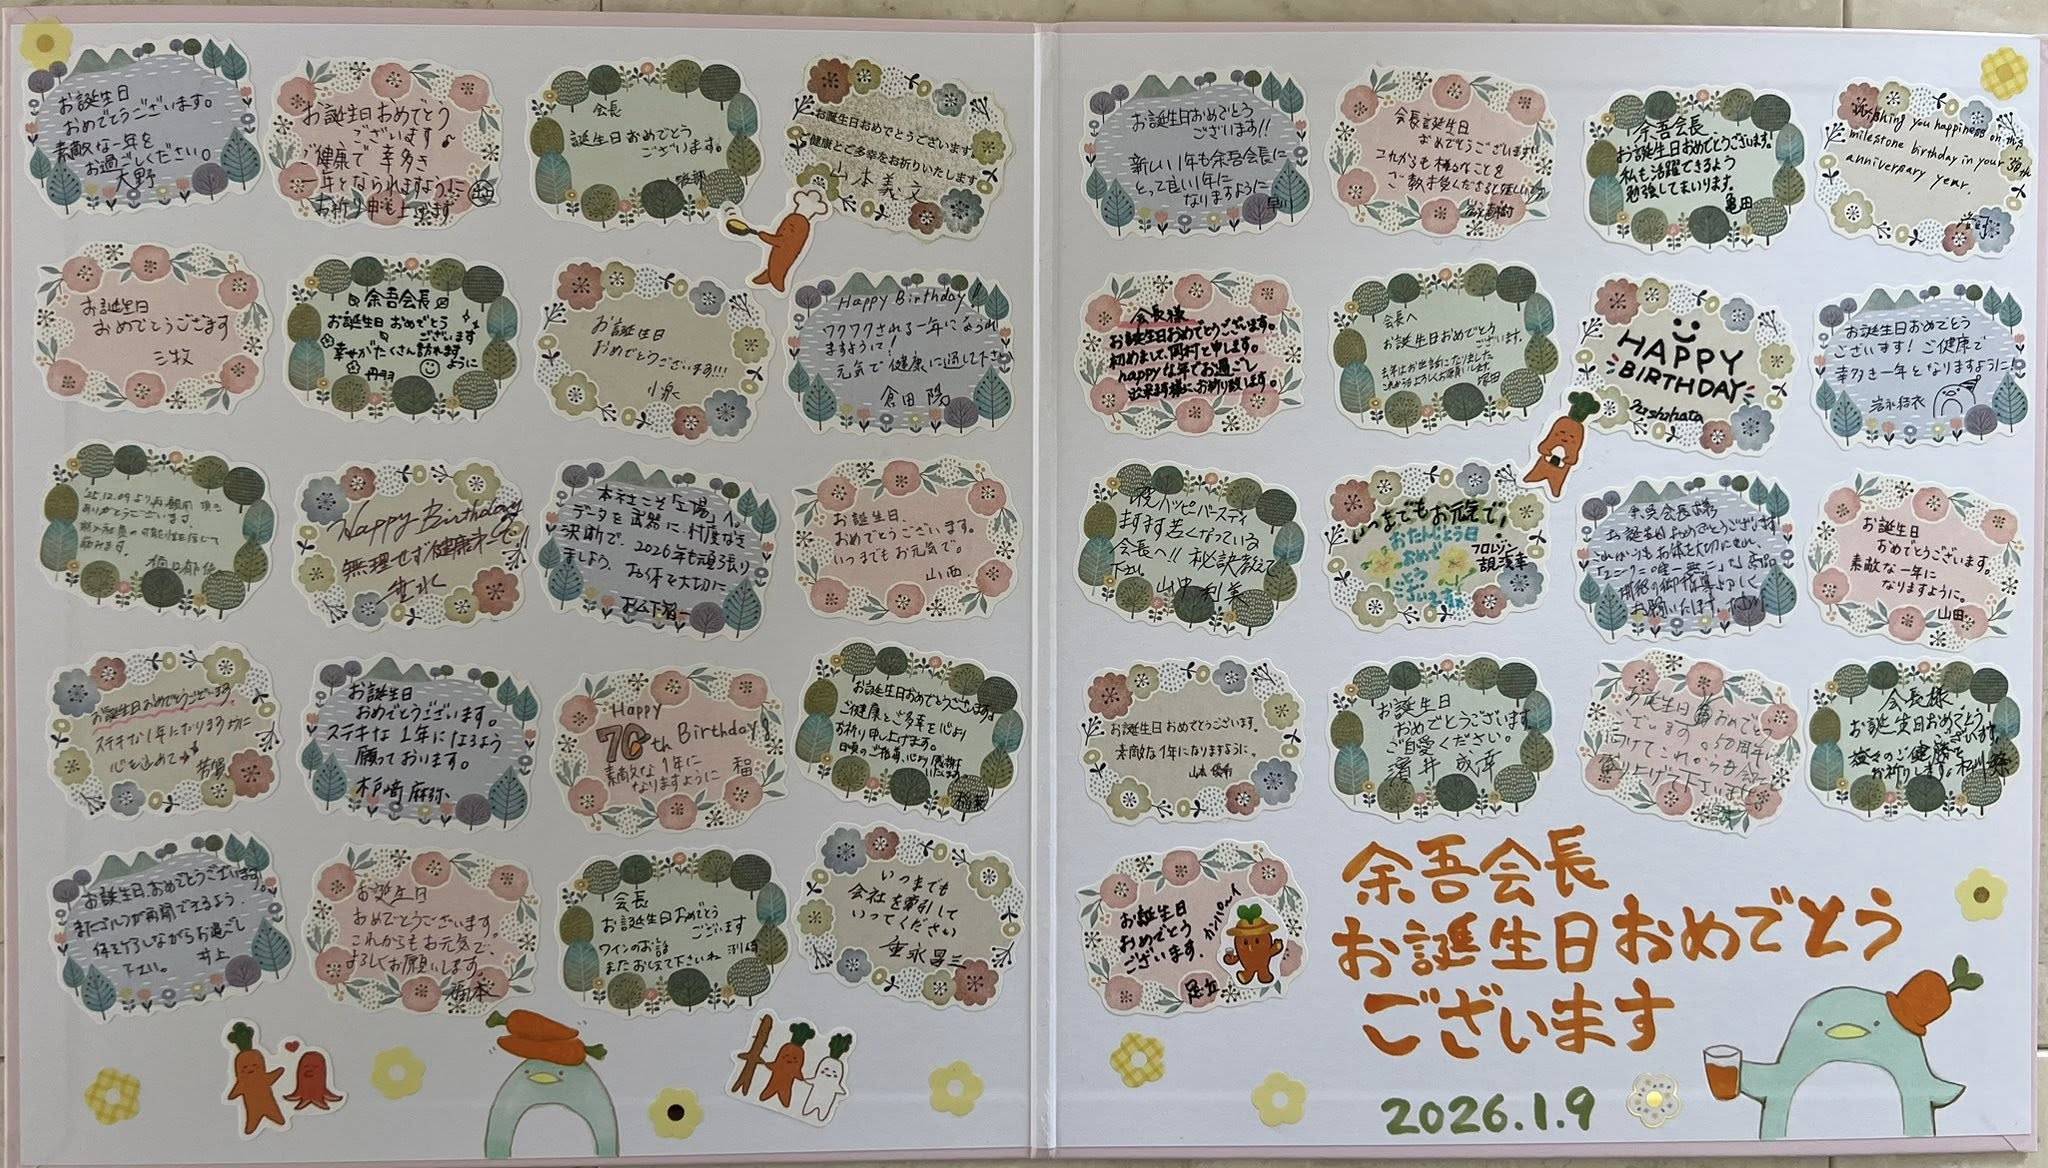 お誕生日
おめでとうございます。
素敵な一年を
お過ごしください。
大野
お誕生日おめでとう
ございます♪
ご健康で幸多き
一年となられますように
お祈り申し上げます
会長
誕生日おめでとう
ございます。
お誕生日おめでとうございます。
ご健康とご多幸をお祈りいたします
山本義文
お誕生日
おめでとうござます
三牧
余吾会長
お誕生日おめでとう
ございます
幸せがたくさん訪れます
ように
丹羽
お誕生日
おめでとうございます!!!
小泉
Happy Birthday!
ワクワクされる一年になられ
ますように!
元気で健康に過して下さい
倉田 陽
'25.12.09より再雇用頂き
ありがとうございます。
Happy Birthday
無理せず健康第一で
垂水
本社こそ「工場」へ。
データを武器に、忖度なき
決断で、2026年も頑張り
ましょう。お体大切に
お誕生日
おめでとうございます。
いつまでもお元気で。
山西
お誕生日おめでとうございます。
ステキな1年になります様に
心を込めて
お誕生日
おめでとうございます。
ステキな1年になるよう
願っております。
杉崎 麻弥
Happy
70th Birthday!
素敵な1年に
なりますように
福
お誕生日おめでとうございます。
ご健康とご多幸を心より
お祈り申し上げます。
日頃のご指導、心より感謝
いたします
稲葉
お誕生日、おめでとうございます。
またゴルフが再開できるよう、
お過ごし
下さい。 井上
お誕生日
おめでとうございます。
これからもお元気で、
よろしくお願いします。
橋本
会長
お誕生日おめでとう
ございます
ワインのお話
またおしえて下さいね
いつまでも
会社を牽引して
いってください
垂永昌三
お誕生日おめでとう
ございます!!
新しい1年も余吾会長に
とって良い1年に
なりますように
早川
会長お誕生日
おめでとうございます!!
これからも様々なことを
ご教授くださると嬉しいです
岩永直樹
余吾会長
お誕生日おめでとうございます!
私も活躍できるよう
勉強してまいります。
亀田
Wishing you happiness on this
milestone birthday in your 50th
anniversary year.
会長様
お誕生日おめでとうございます。
初めまして、岡村と申します。
happyな年でお過ごし
出来ます様に、お祈り致します。
会長へ
お誕生日おめでとう
ございます。
去年はお世話になりました
これからもよろしくお願いします。
塚田
HAPPY
BIRTHDAY
お誕生日おめでとう
ございます!ご健康で
幸多き一年となりますように!
岩永結衣
祝ハッピバースディ
ますます若くなっている
会長へ!!秘訣教えて
下さい 山中利美
いつまでもお元気で!
おたんじょう日
おめで
とう
ございます
フロムシン
余吾会長様
お誕生日おめでとうございます
これからもお体を大切にされ、
お願いいたします。
お誕生日
おめでとうございます。
素敵な一年に
なりますように。
山田
お誕生日おめでとうございます。
素敵な1年になりますように。
お誕生日
おめでとうございます
ご自愛ください。
お誕生日おめでとう
ございます。50周年に
向けてこれからも会社を
盛り上げて下さいませ!!
会長様
お誕生日おめでとう
ございます。
益々のご健勝を
お祈りします。
お誕生日
おめでとう
ございます。
カンパーイ
足立
余吾会長
お誕生日おめでとう
ございます
2026.1.9